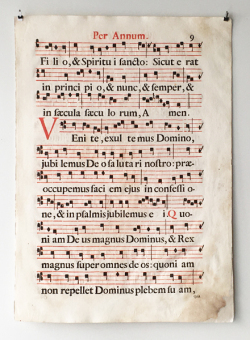 Per Annum. 9
Fi li o, & Spiritu i sancto: Sicut e rat
in princi pi o, & nunc, & semper, &
in sæcula sæcu lo rum, A men.
VEni te, exul te mus Domino,
jubi lemus De o sa luta ri nostro: præ-
occupemus faci em ejus in confessi o-
ne, & in psalmis jubilemus e i. Quo-
ni am De us magnus Dominus, & Rex
magnus super omnes de os: quoni am
non repellet Dominus plebem su am,